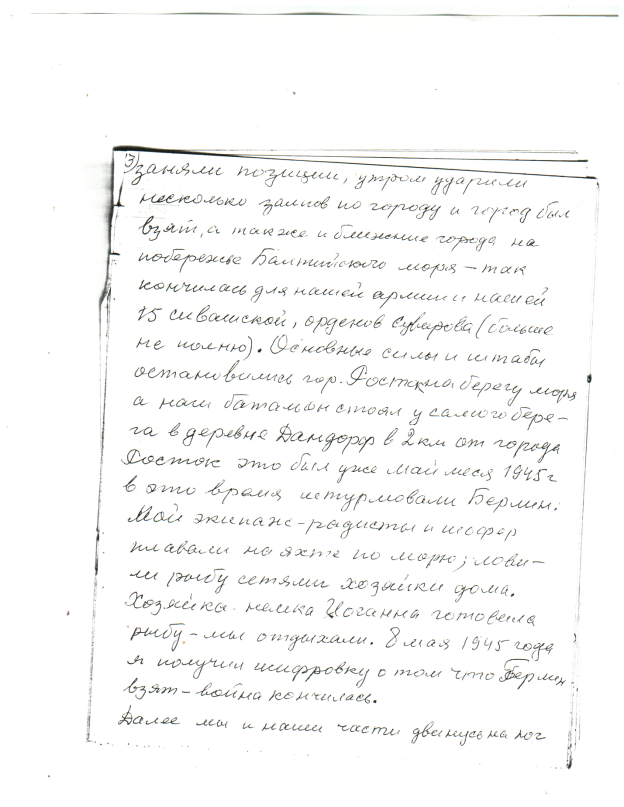 3) заняли позиции, утром ударили
несколько залпов по городу и город был
взят, а также и ближние города на
побережье Балтийского моря – так
кончилась для нашей армии и нашей
15 сивашской, орденов Суворова (больше
не помню). Основные силы и штабы
остановились гор. Росток на берегу моря
а наш батальон стоял у самого бере-
га в деревне Дандорф в 2 км от города
Росток это был уже май меся 1945 г
в это время штурмовали Берлин.
Мой экипаж – радисты и шофер
плавали на яхте по морю; лови-
ли рыбу сетями хозяйки дома.
Хозяйка – немка Иоганна готовила
рыбу – мы отдыхали. 8 мая 1945 года
я получил шифровку о том что Берлин
взят – война кончилась.
Далее мы и наши части двинусь на юг